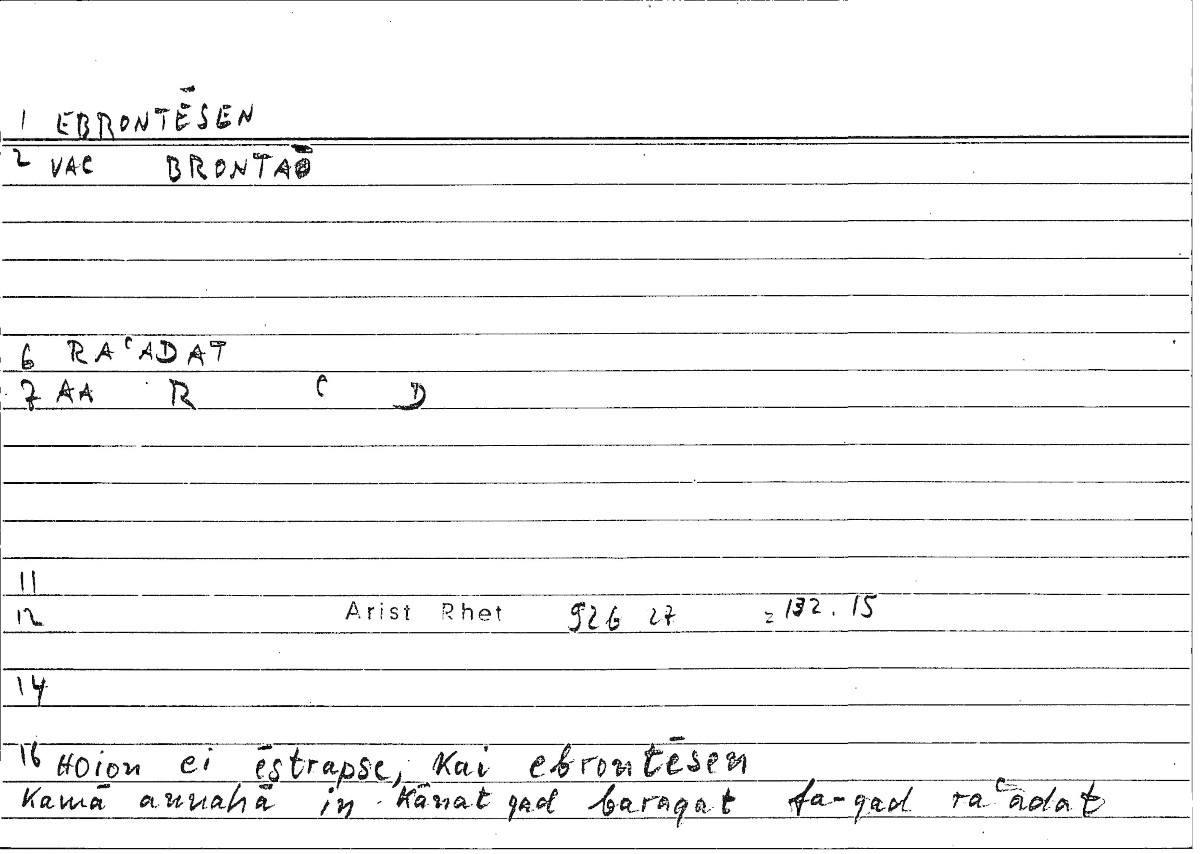 1 EBRONTĒSEN
2 VAC BRONTAŌ
6 RAʿADAT
7 AA R ʿ D
11
12 Arist Rhet 92b 27 = 132.15
14
16 Hoion ei ēstrapse, kai ebrontēsen
Kamā annahā in kānat qad baraqat fa-qad raʿadat